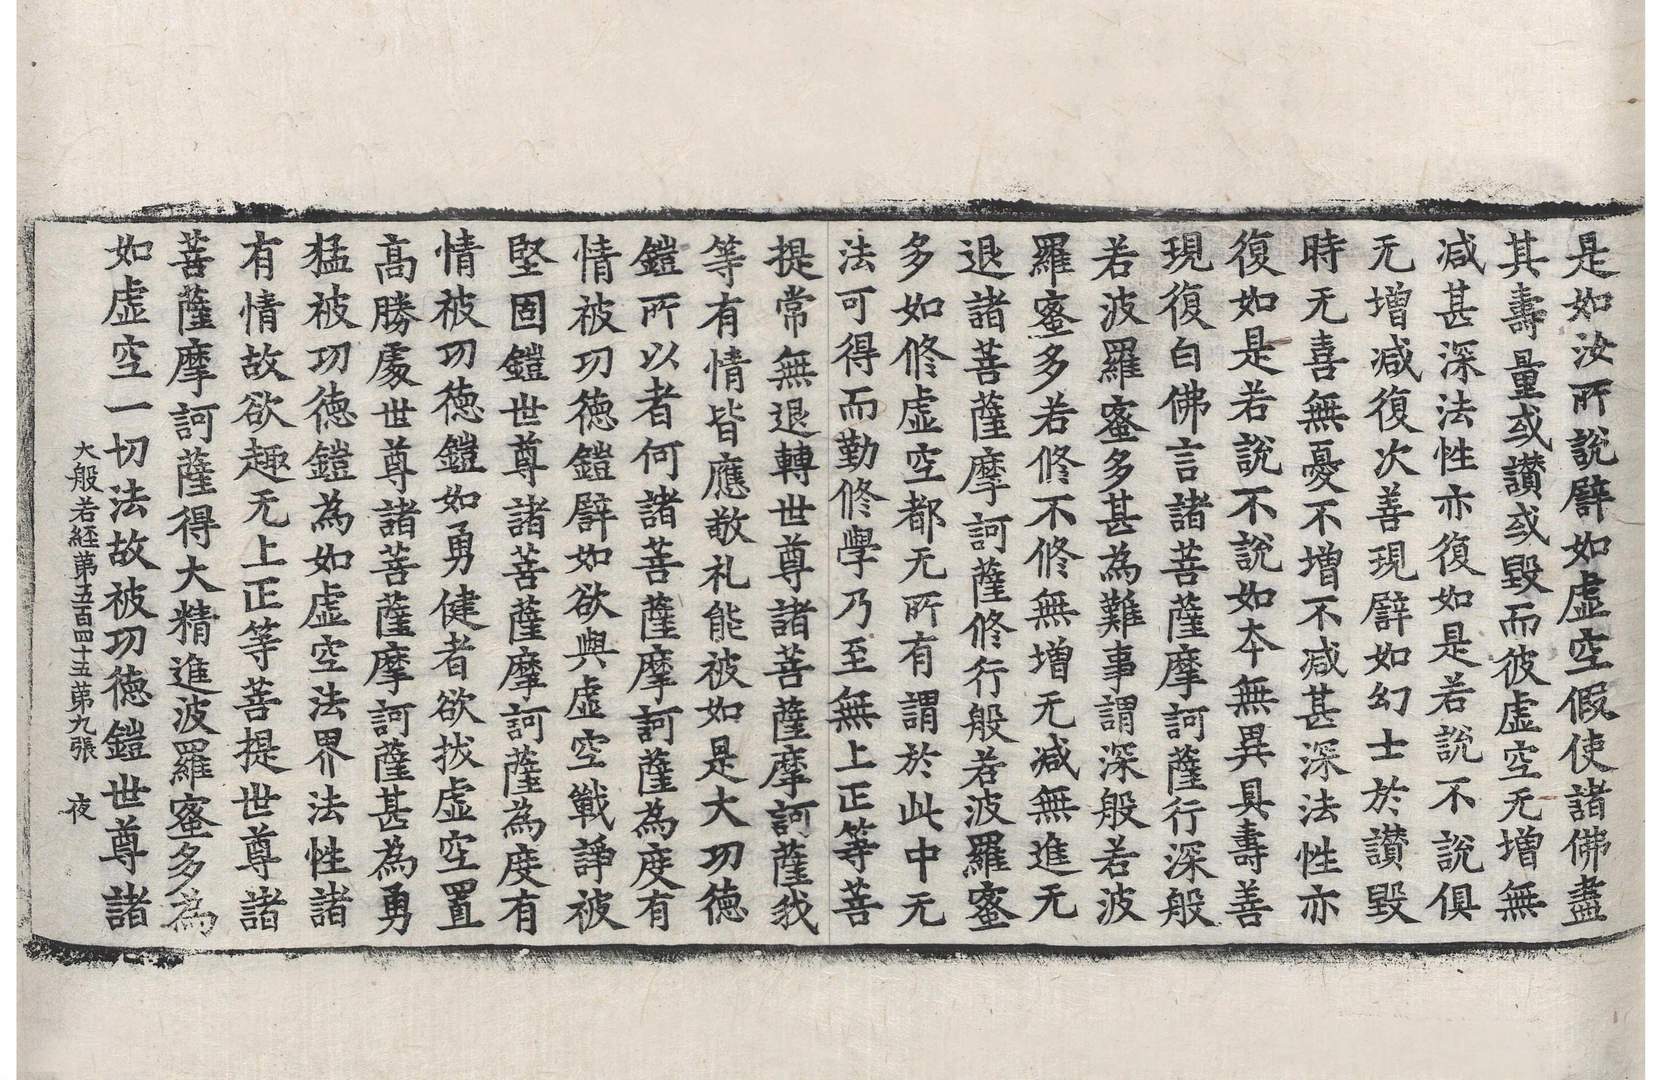 是如汝所說譬如虛空假使諸佛盡
其壽量或讚或毀而彼虛空无增無
減甚深法性亦復如是若說不說俱
无增減復次善現譬如幻士於讚毀
時无喜無憂不增不減甚深法性亦
復如是若說不說如本無異具壽善
現復白佛言諸菩薩摩訶薩行深般
若波羅蜜多甚為難事謂深般若波
羅蜜多若修不修無增无減無進无
退諸菩薩摩訶薩修行般若波羅蜜
多如修虛空都无所有謂於此中无
法可得而勤修學乃至無上正等菩
提常無退轉世尊諸菩薩摩訶薩我
等有情皆應敬礼能被如是大功德
鎧所以者何諸菩薩摩訶薩為度有
情被功德鎧譬如欲與虛空戰諍被
堅固鎧世尊諸菩薩摩訶薩為度有
情被功德鎧如勇健者欲拔虛空置
高勝處世尊諸菩薩摩訶薩甚為勇
猛被功德鎧為如虛空法界法性諸
有情故欲趣无上正等菩提世尊諸
菩薩摩訶薩得大精進波羅蜜多為
如虛空一切法故被功德鎧世尊諸
大般若経苐五百四十五苐九張 夜